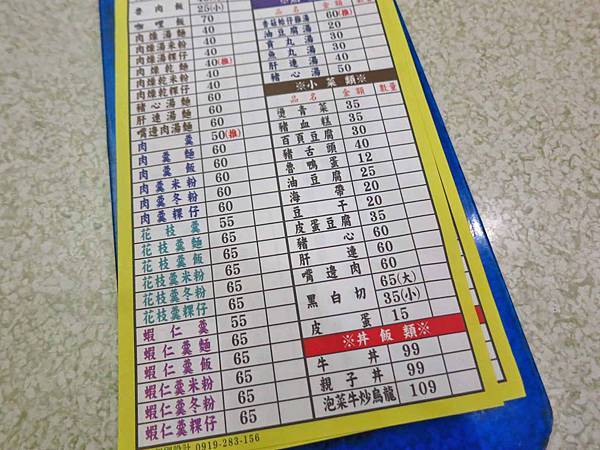 魯肉飯 25(小)
咖哩飯 70
肉燥湯麵 40
肉燥湯米粉 40
肉燥湯粿仔 40(推)
肉燥乾麵 40
肉燥乾米粉 40
肉燥乾粿仔 40
豬心湯麵 60
肝連湯麵 60
嘴邊肉湯麵 60
肉羹 50(推)
肉羹麵 60
肉羹飯 60
肉羹米粉 60
肉羹冬粉 60
肉羹粿仔 60
花枝羹 55
花枝羹麵 65
花枝羹飯 65
花枝羹米粉 65
花枝羹冬粉 65
花枝羹粿仔 65
蝦仁羹 55
蝦仁羹麵 65
蝦仁羹飯 65
蝦仁羹米粉 65
蝦仁羹冬粉 65
蝦仁羹粿仔 65
0919-283-156
品名 金額 數量
60(推)
油豆腐湯 20
貢丸湯 30
魚丸湯 30
肝連湯 50
豬心湯 50
※小菜類※
品名 金額 數量
燙青菜 35
豬血糕 35
百頁豆腐 30
豬舌頭 40
魯鴨蛋 12
油豆腐 25
海帶 20
豆干 20
皮蛋豆腐 35
豬心 60
肝連 60
嘴邊肉 60
黑白切 65(大)
35(小)
皮蛋 15
※丼飯類※
牛丼 99
親子丼 99
泡菜牛炒烏龍 109